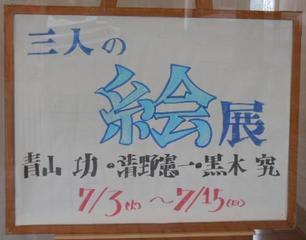 三人の
絵展
青山 功・清野憲一・黒木 究
7/3(火)～7/15(日)